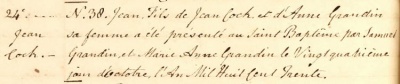 24e. N.º 38. Jean, Fils de Jean Coch, et d'Anne Grandin
Jean sa femme a été présenté au Saint Baptême par Samuel
Coch. Grandin, et Marie Anne Grandin le Vingt quatrième
jour d'Octobre, l'An Mil Huit Cent Trente.